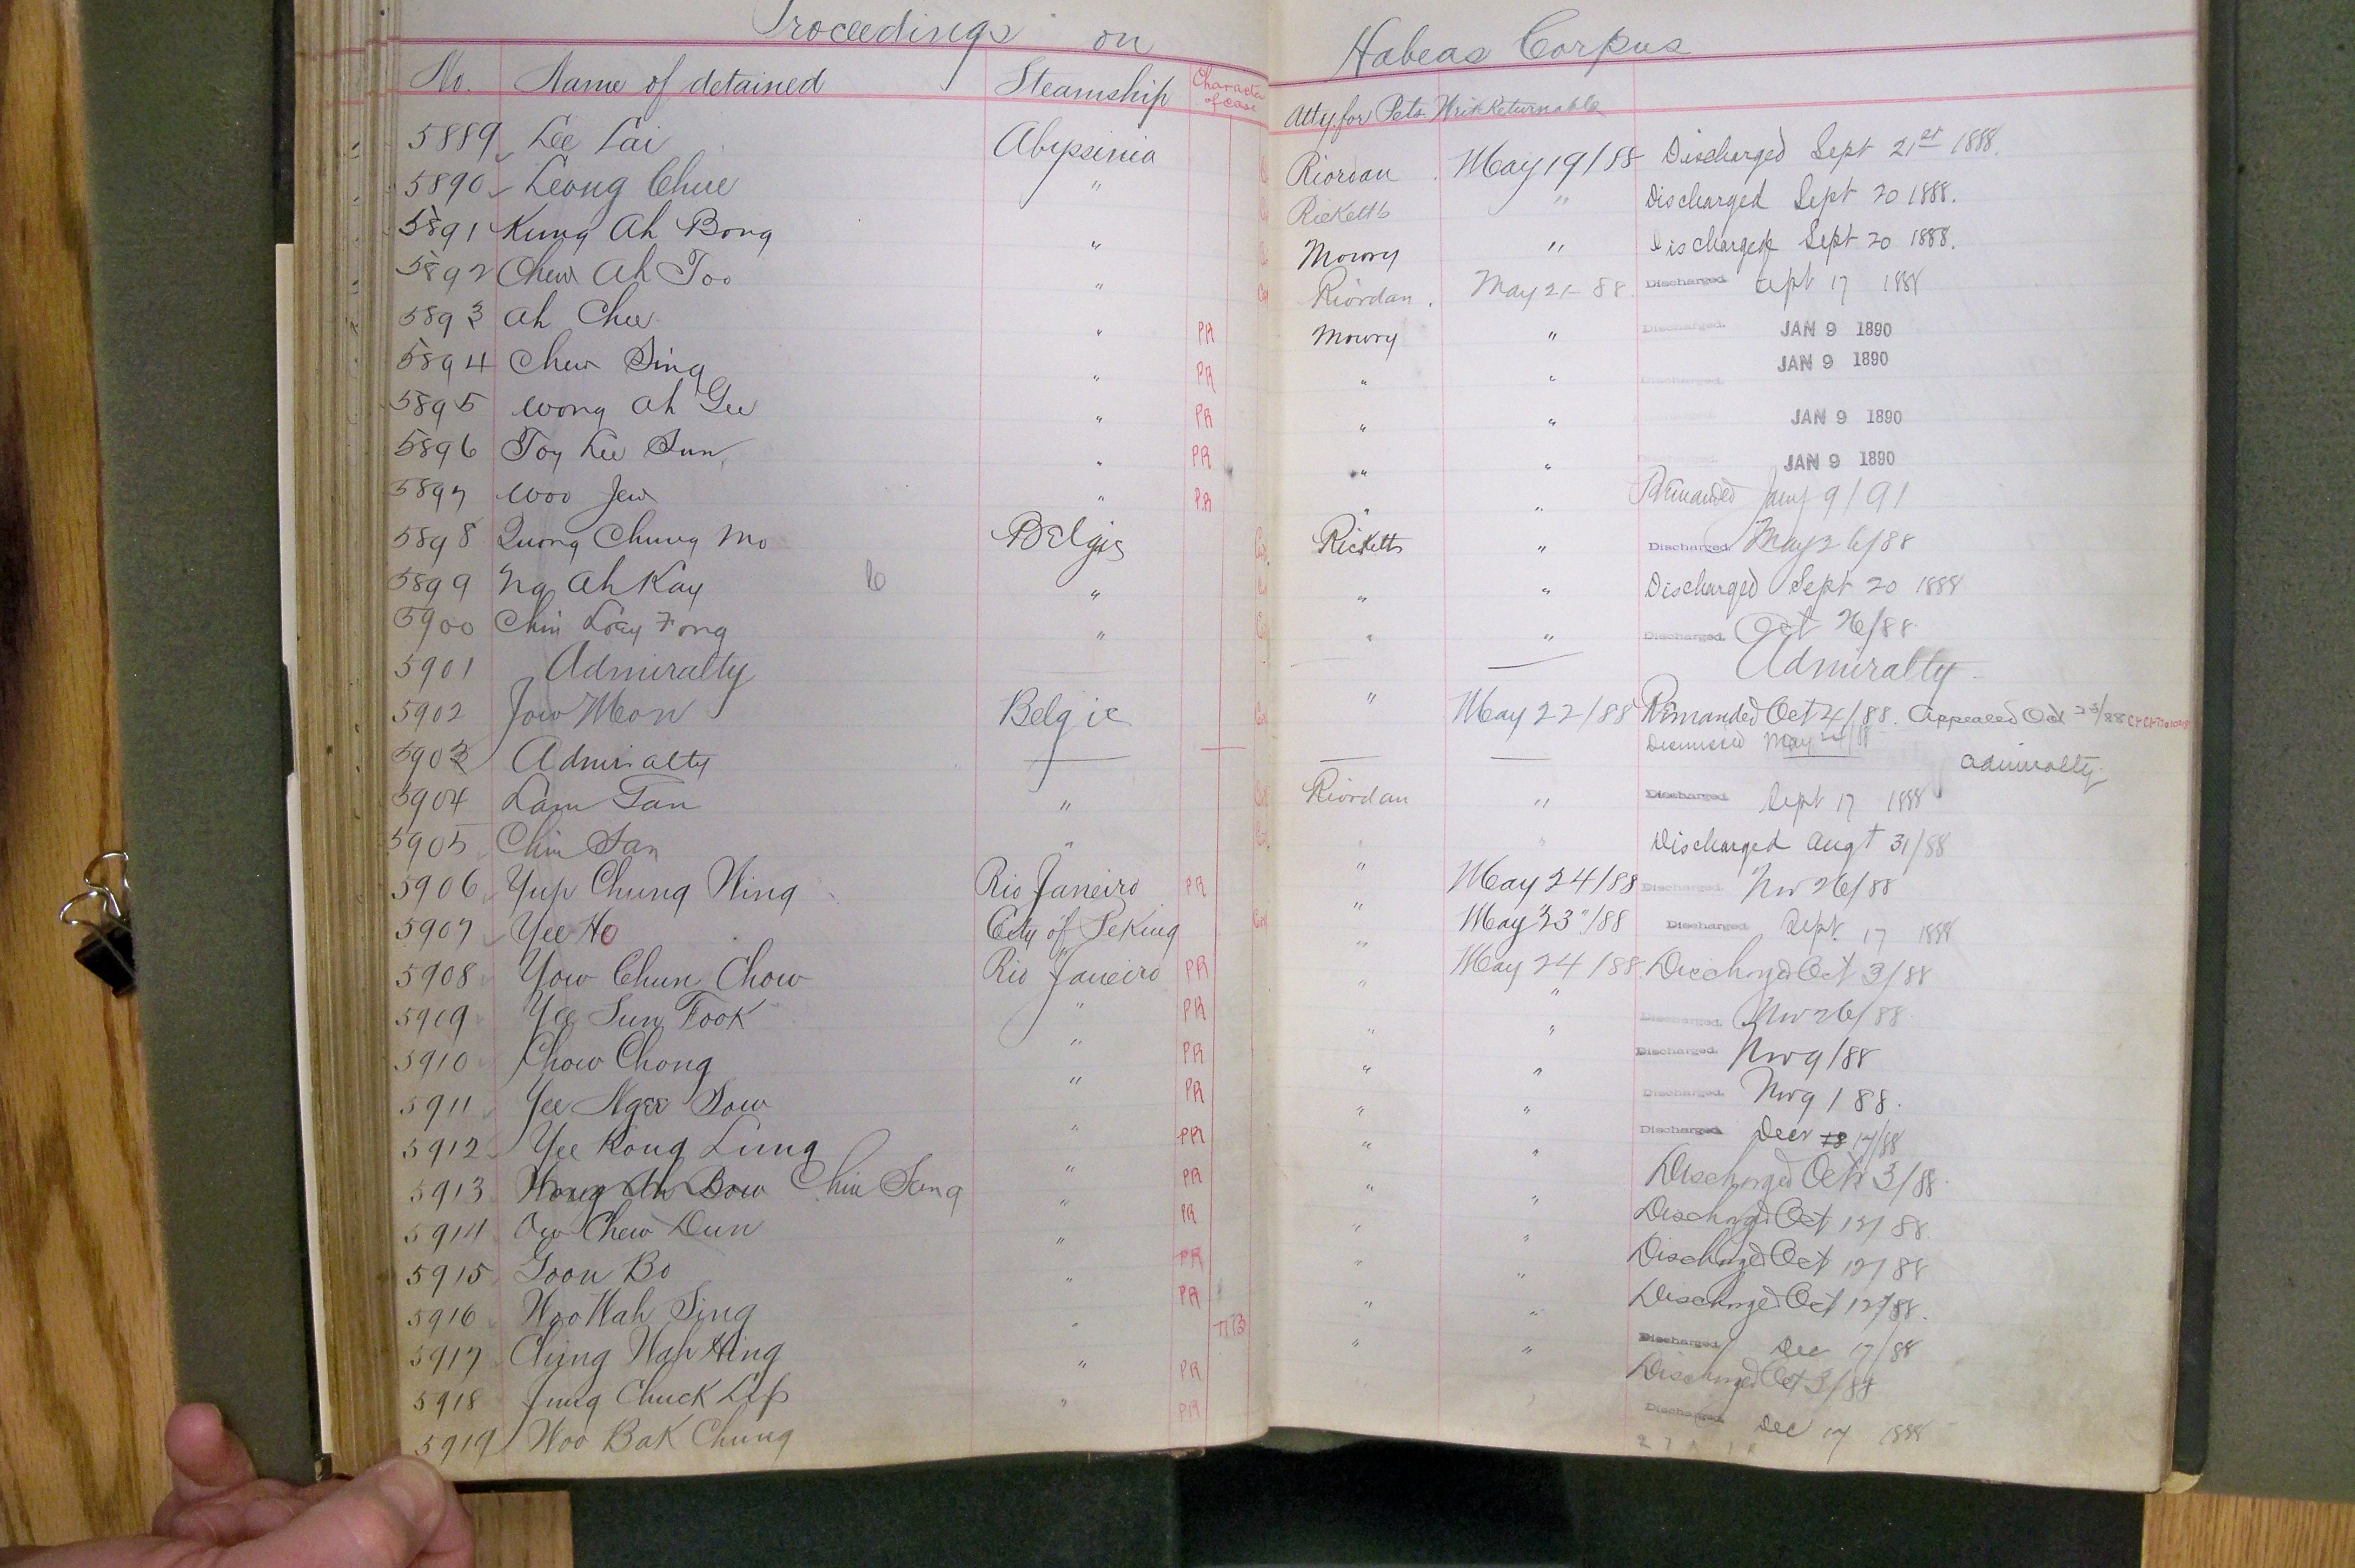 Proceedings on Habeas Corpus
No. Name of detained Steamship Character of case Atty. for Pets. Writ Returnable
5889 Lee Lai Abyssinia Riordan May 19/88 Discharged Sept 21st 1888.
5890 Leong Chue " Ricketts " Discharged Sept 20 1888.
5891 Kung Ah Bong " Mowry " Discharged Sept 20 1888.
5892 Chew Ah Too " Riordan. May 21-88. Discharged Sept 17 1888
5893 Ah Chee " PR Mowry " Discharged. JAN 9 1890
5894 Chew Sing " PR " " Discharged. JAN 9 1890
5895 Wong Ah Gee " PR " " JAN 9 1890
5896 Toy Lee Sun " PR " " JAN 9 1890
5897 Woo Jew " PR " " Remanded Jany 9/91
5898 Quong Chung Mo Belgic Ricketts " Discharged. May 26/88
5899 Ng Ah Kay " " " Discharged Sept 20 1888
5900 Chin Loey Fong " " " Discharged. Oct 26/88
5901 Admiralty Admiralty
5902 Jow Mon Belgic " May 22/88 Remanded Oct 4/88. Appealed Oct 25/88
Dismissed May 24/88
5903 Admiralty Admiralty
5904 Lam Tan " Riordan " Discharged Sept 17 1888
5905 Chin San " " " Discharged Augt 31/88
5906 Yup Chung Wing Rio Janeiro PR " May 24/88 Discharged. Nov 26/88
5907 Yee Ho City of Peking " May 23"/88 Discharged. Sept. 17 1888
5908 Yow Chun Chow Rio Janeiro PR " May 24/88 Discharged Oct 3/88
5909 Yee Sun Fook " PR " " Discharged. Nov 26/88
5910 Chow Chong " PR " " Discharged. Nov 9/88
5911 Yee Ngee Sow " PR " " Discharged. Nov 9/88.
5912 Yee Kong Lung " PR " " Discharged Decr 18 17/88
5913 Wong Ah Bow Chin Sang " PR " " Discharged Oct 3/88.
5914 Ow Chew Dun " PR " " Discharged Oct 12/88
5915 Goon Bo " PR " " Discharged Oct 12/88
5916 Woo Wah Sing " PR " " Discharged Oct 12/88.
5917 Ching Wah Hing " " " Discharged Dec 17/88
5918 Jung Chuck Lip " PR Discharged Oct 3/88
5919 Woo Bak Chung " PR Discharged Dec 17 1888